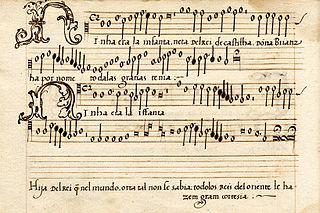 Ninha era la infanta, neta del rei de castilha. dona Brianz
ha por nome todalas gracias tenia :~
Ninha era la iffanta
Hija del Rei q̃ nel mundo, otra tal non se sabia; todolos Reis del oriente le ha
zem gram cortesia :~